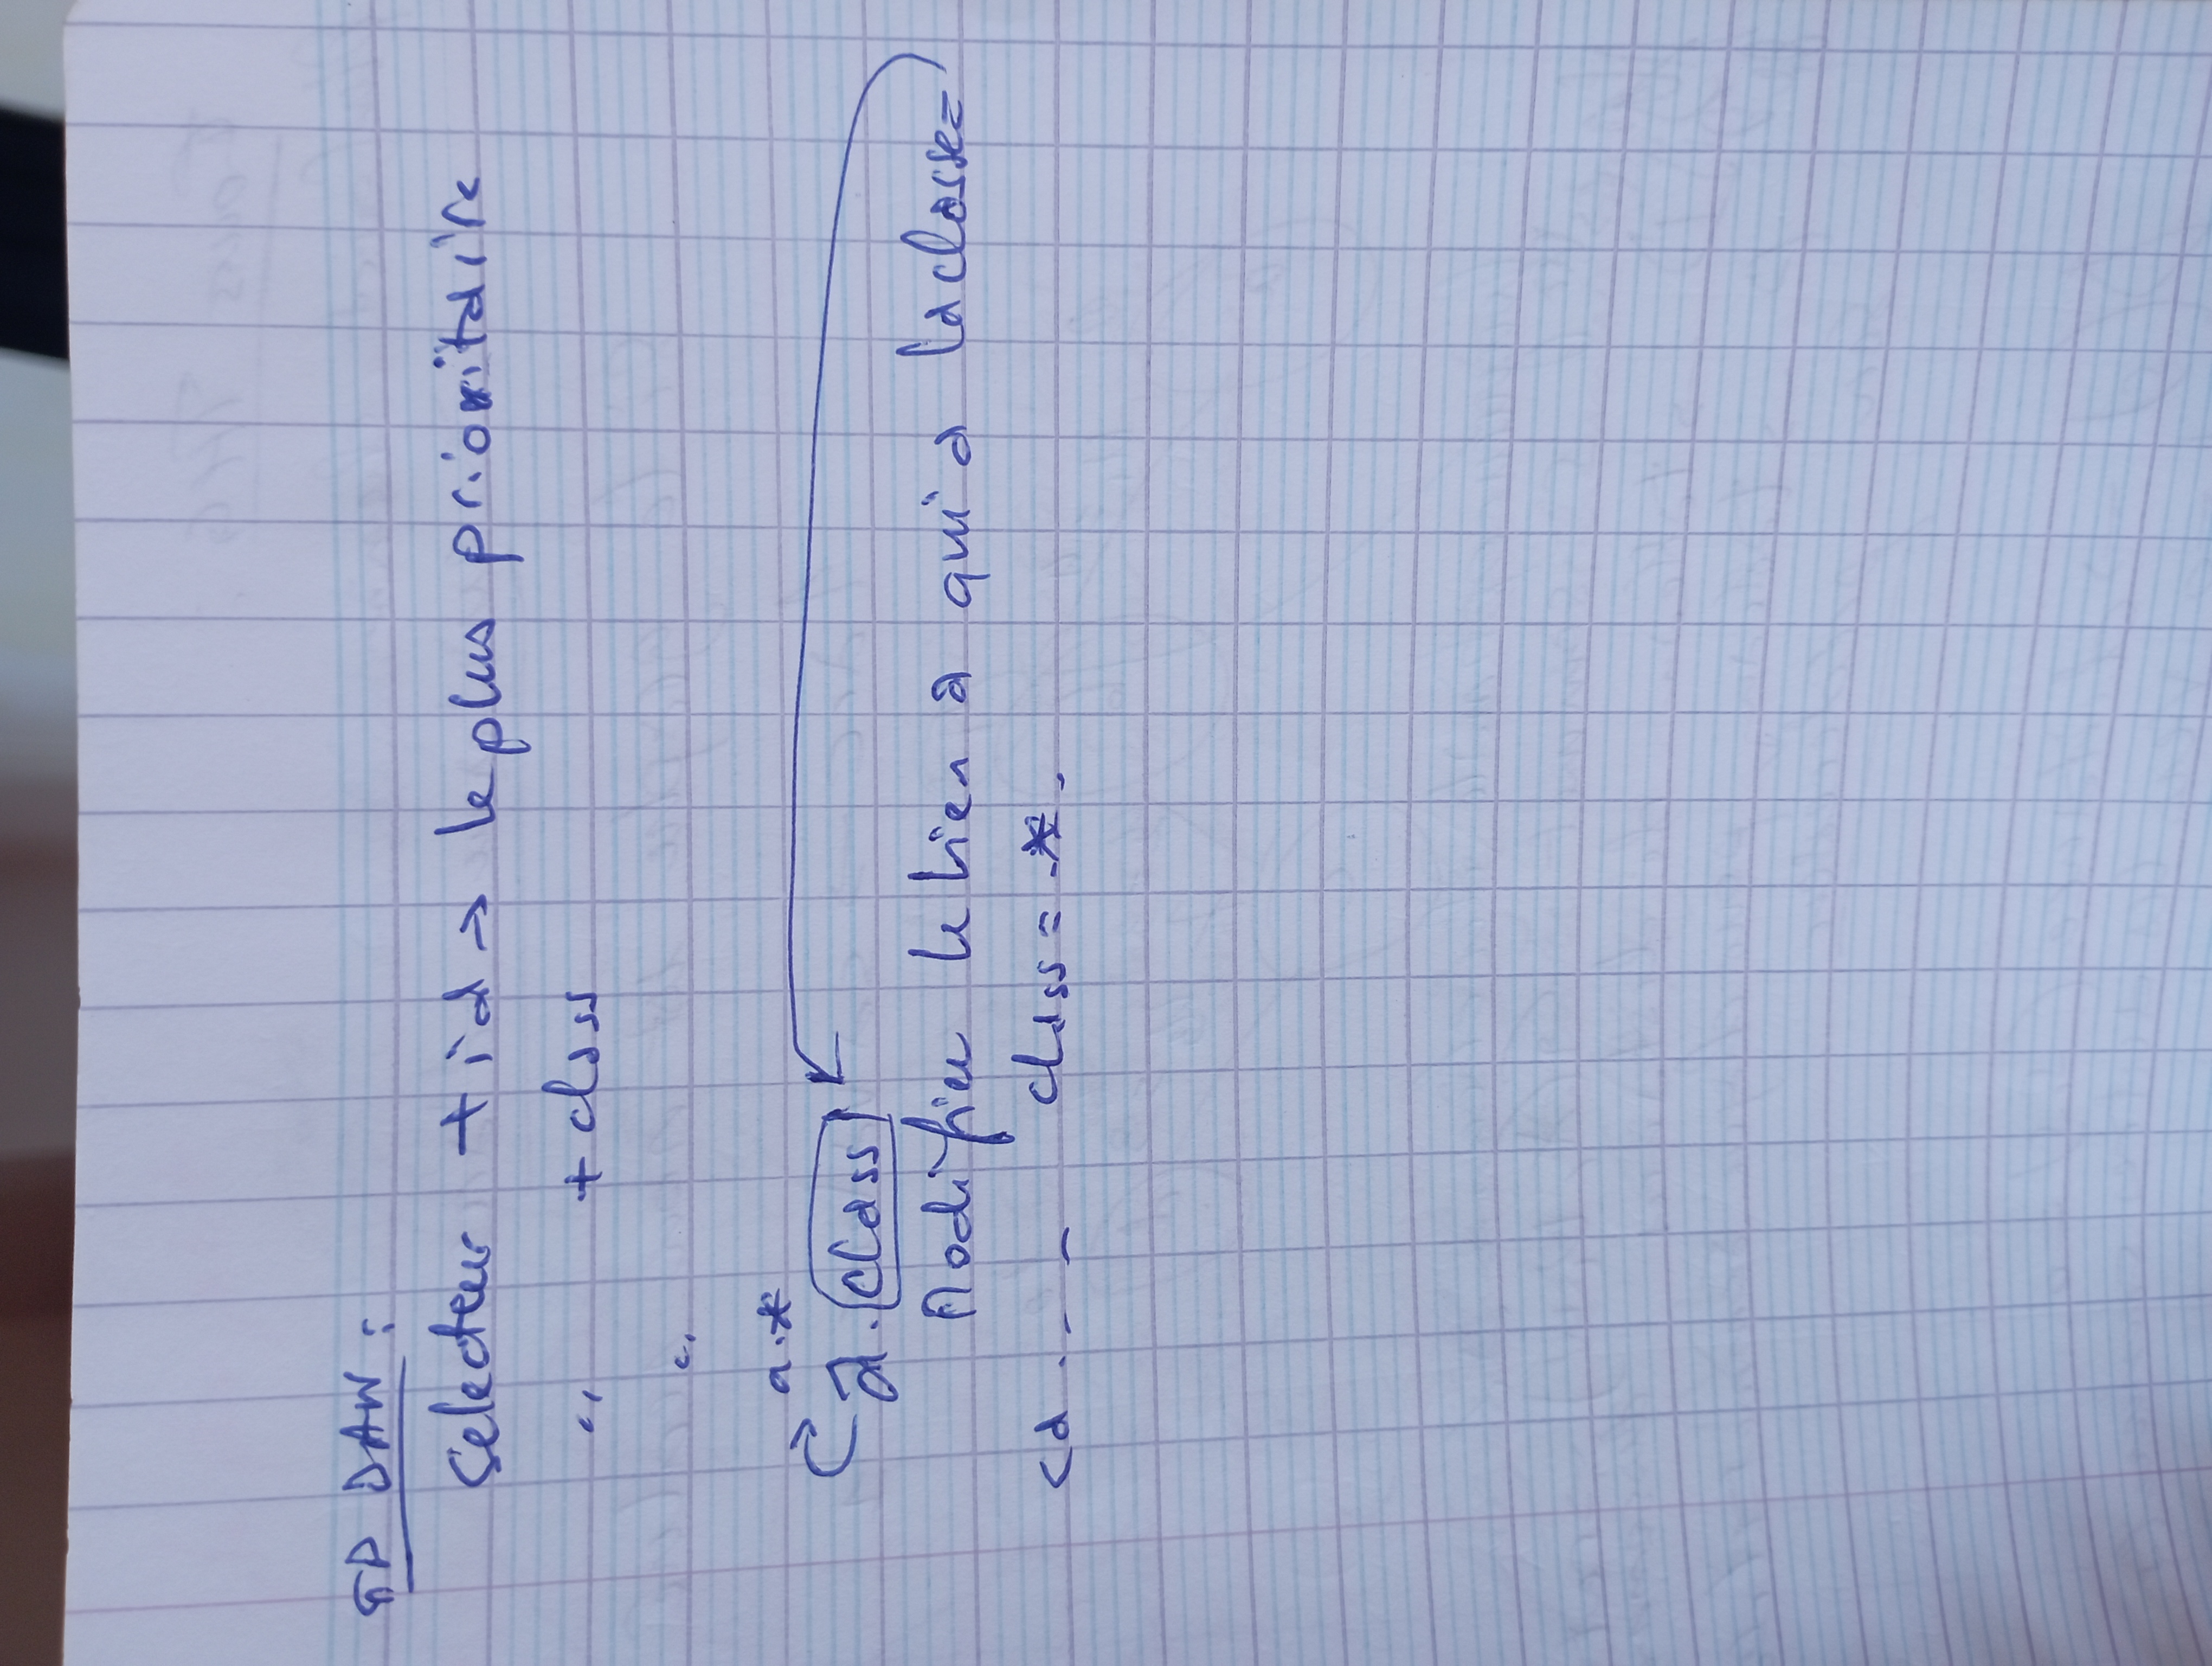 TP DAW :
selecteur + id → le plus prioritaire
" + class
"
a.*
a.class
Modifier le lien a qui a la classe=
<a . - - class = .*.